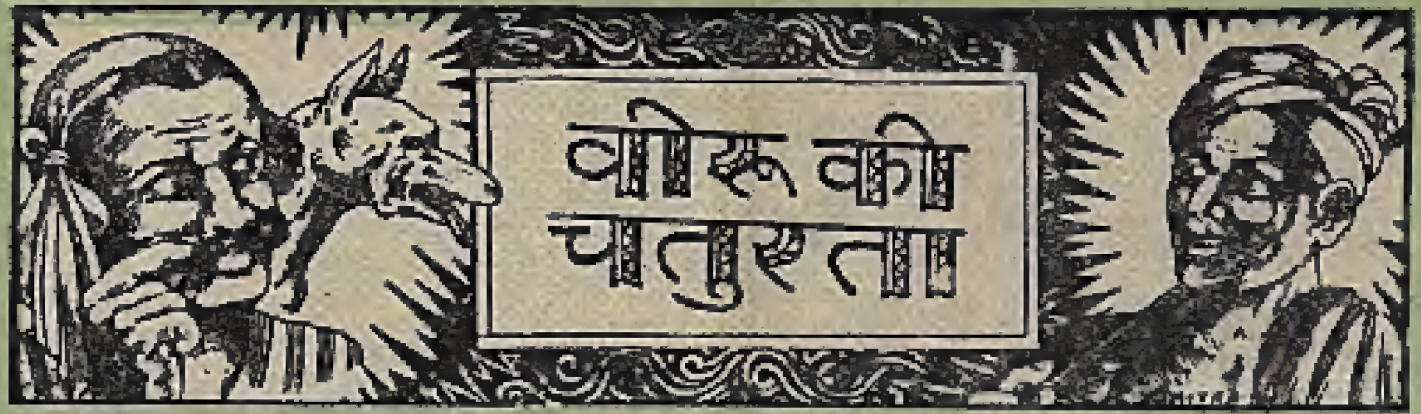 वीरू की
चातुरता